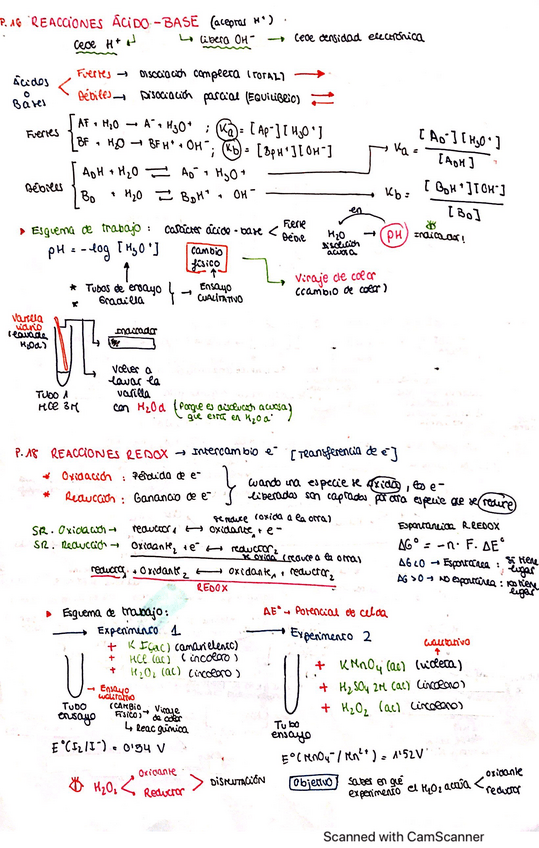 P.16 REACCIONES ÁCIDO-BASE (aceptas H⁺).
Cede H⁺ ↲ ↳ libera OH⁻ → Cede densidad electrónica
Ácidos o Bases
Fuertes → Disociación completa (TOTAL) →
Débiles → Disociación parcial (EQUILIBRIO) ⇌
Fuertes
AF + H₂O → A⁻ + H₃O⁺ ; Ka = [AF⁻][H₃O⁺]
BF + H₂O → BFH⁺ + OH⁻ ; Kb = [BFH⁺][OH⁻]
Débiles
ADH + H₂O ⇌ AD⁻ + H₃O⁺ → Ka = [AD⁻][H₃O⁺] / [ADH]
BD + H₂O ⇌ BDH⁺ + OH⁻ → Kb = [BDH⁺][OH⁻] / [BD]
▸ Esquema de trabajo: carácter ácido-base < Fuerte Débil
en
H₂O disolución acuosa → pH = indicador!
pH = -log [H₃O⁺]
cambio físico
* Tubos de ensayo
* Gradilla
→ ENSAYO CUALITATIVO
→ Viraje de color (cambio de color)
Varilla vidrio (lavada H₂Od)
indicador
Volver a lavar la varilla
con H₂Od (Porque es disolución acuosa) que está en H₂Od
TUBO 1
HCl 3M
P.18 REACCIONES REDOX → Intercambio e⁻ [Transferencia de e⁻]
* Oxidación: Pérdida de e⁻
* Reducción: Ganancia de e⁻
Cuando una especie se oxida, los e⁻
liberados son captados por otra especie que se reduce
se reduce (oxida a la otra)
SR. Oxidación → reductor₁ ⟷ oxidante₁ + e⁻
SR. Reducción → Oxidante₂ + e⁻ ⟷ reductor₂
se oxida (reduce a la otra)
reductor₁ + Oxidante₂ ⟷ oxidante₁ + reductor₂
REDOX
Espontaneidad R.REDOX
ΔG° = -n · F · ΔE°
ΔG<0 → Espontánea: sí tiene lugar
ΔG>0 → No espontánea: no tiene lugar
▸ Esquema de trabajo:
ΔE° → Potencial de celda
→ Experimento 1
+ KI (ac) (amarillento)
+ HCl (ac) (incoloro)
+ H₂O₂ (ac) (incoloro)
Tubo ensayo
→ Ensayo cualitativo
(CAMBIO FÍSICO) → Viraje de color
↳ Reac química
E°(I₂/I⁻) = 0'54 V
→ Experimento 2
cualitativo
+ KMnO₄ (ac) (violeta)
+ H₂SO₄ 2M (ac) (incoloro)
+ H₂O₂ (ac) (incoloro)
Tubo ensayo
E°(MnO₄⁻/Mn²⁺) = 1'52V
H₂O₂ < Oxidante Reductor > DISMUTACIÓN
Objetivo Saber en qué experimento el H₂O₂ actúa < oxidante reductor
Scanned with CamScanner